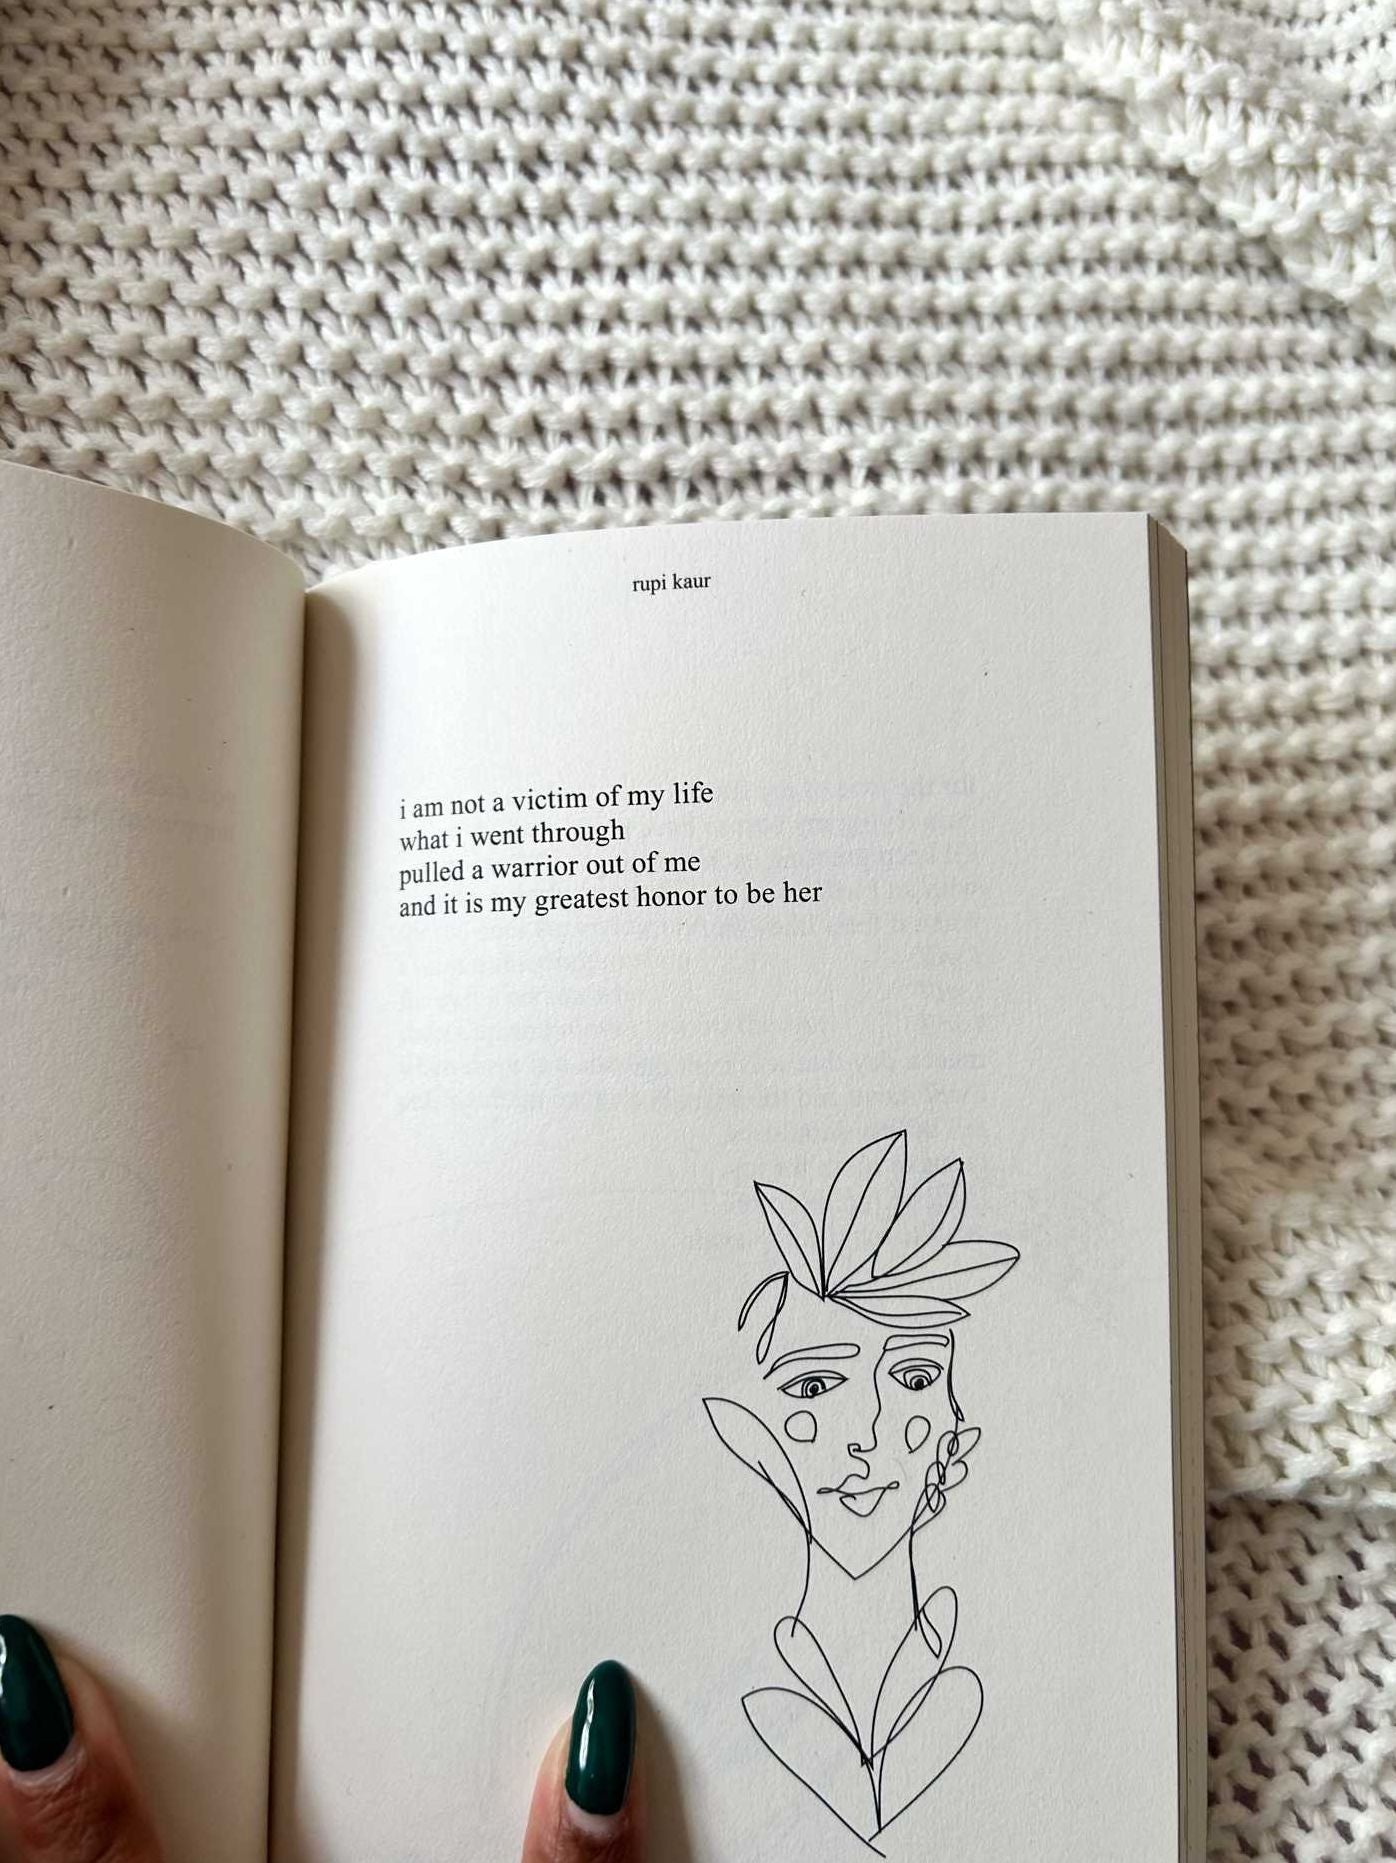 rupi kaur
i am not a victim of my life
what i went through
pulled a warrior out of me
and it is my greatest honor to be her